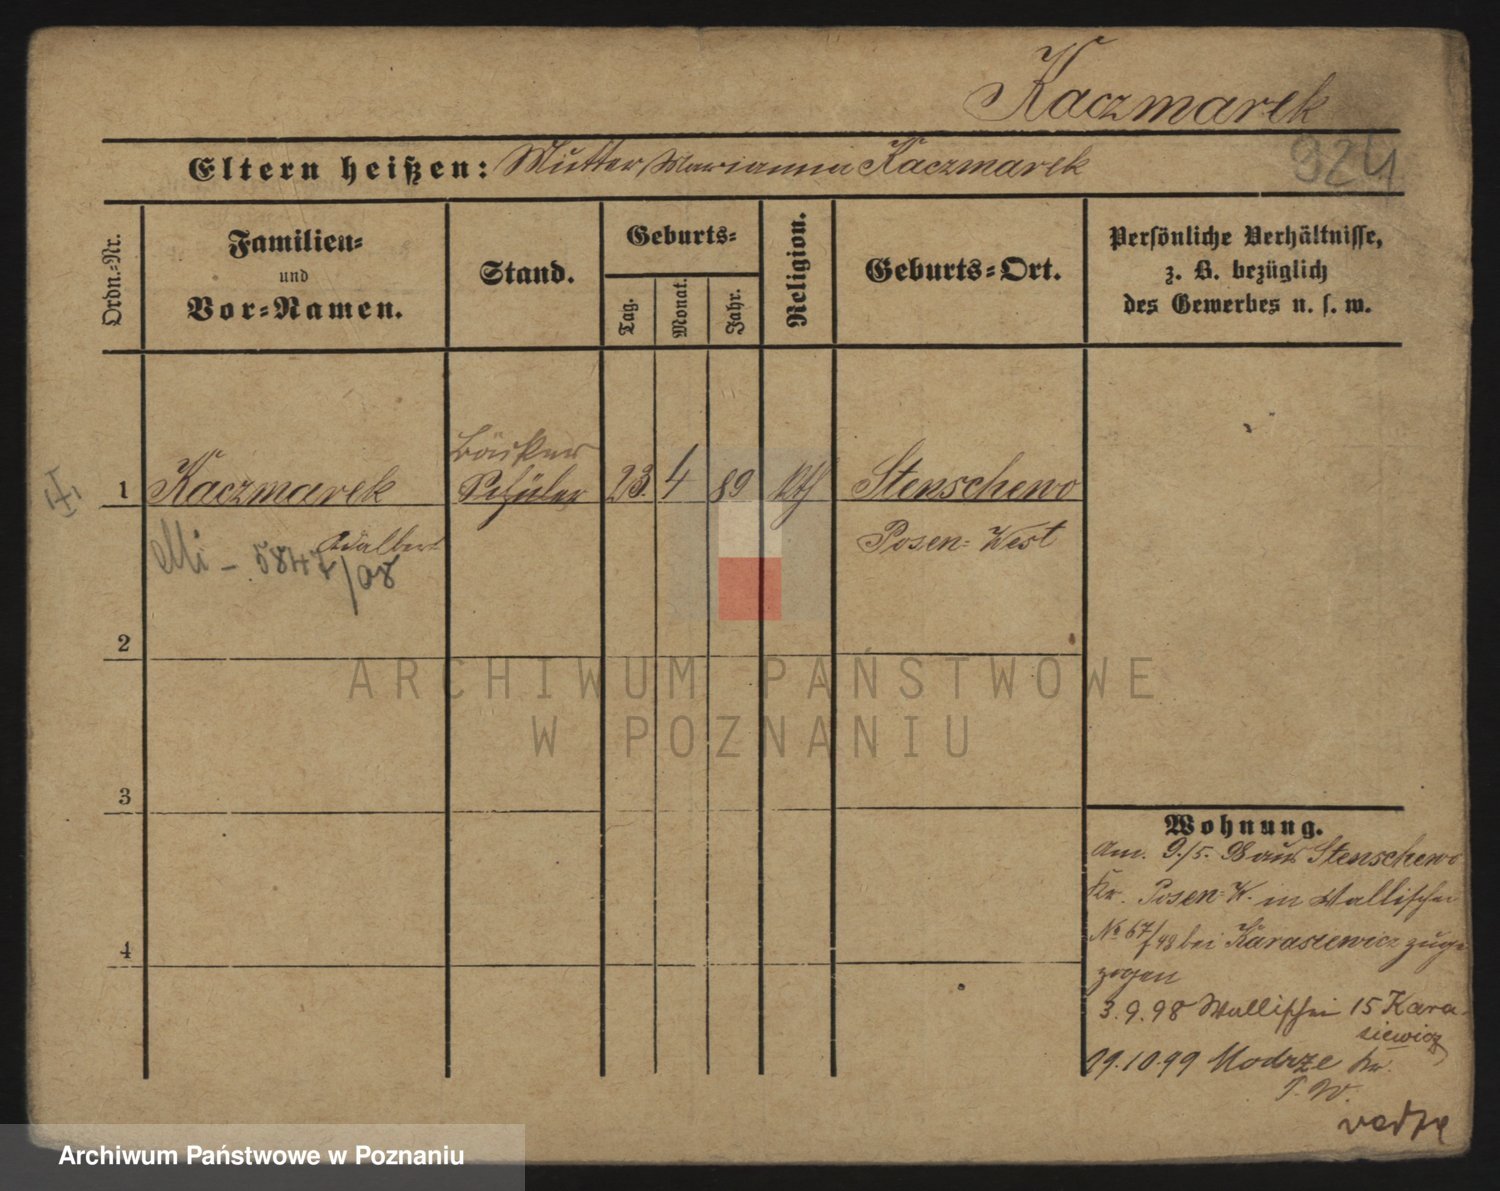 Kaczmarek
924
Eltern heißen: Mutter, Marianna Kaczmarek
Ordn.=Nr.
Familien=
und
Vor=Namen.
Stand.
Geburts=
Tag.
Monat.
Jahr.
Religion.
Geburts=Ort.
Persönliche Verhältnisse,
z. B. bezüglich
des Gewerbes u. s. w.
Bäcker
1 Kaczmarek Schüler 23. 4 89 kth Stenschewo
Adalbert Posen=West
Mi - 5847/08
2
ARCHIWUM PAŃSTWOWE
W POZNANIU
3
4
Wohnung.
Am. 9./5. 98 aus Stenschewo
Kr. Posen=W. in Wallischei
No 67/ bei Karasiewicz zuge
zogen
3.9.98 Wallischei 15 Kara-
siewicz
29.10.99 Modrze Kr.
P. W.
Archiwum Państwowe w Poznaniu